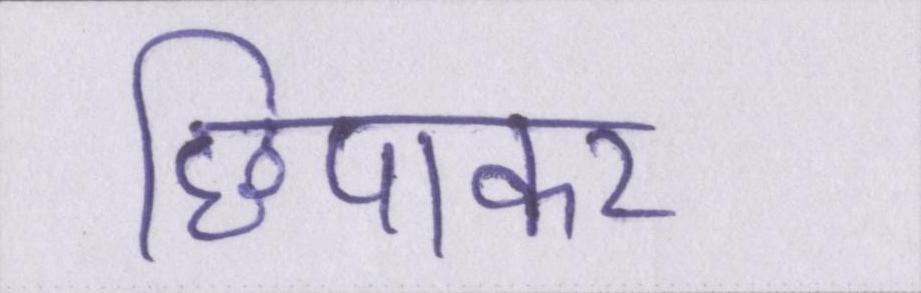 छिपाकर